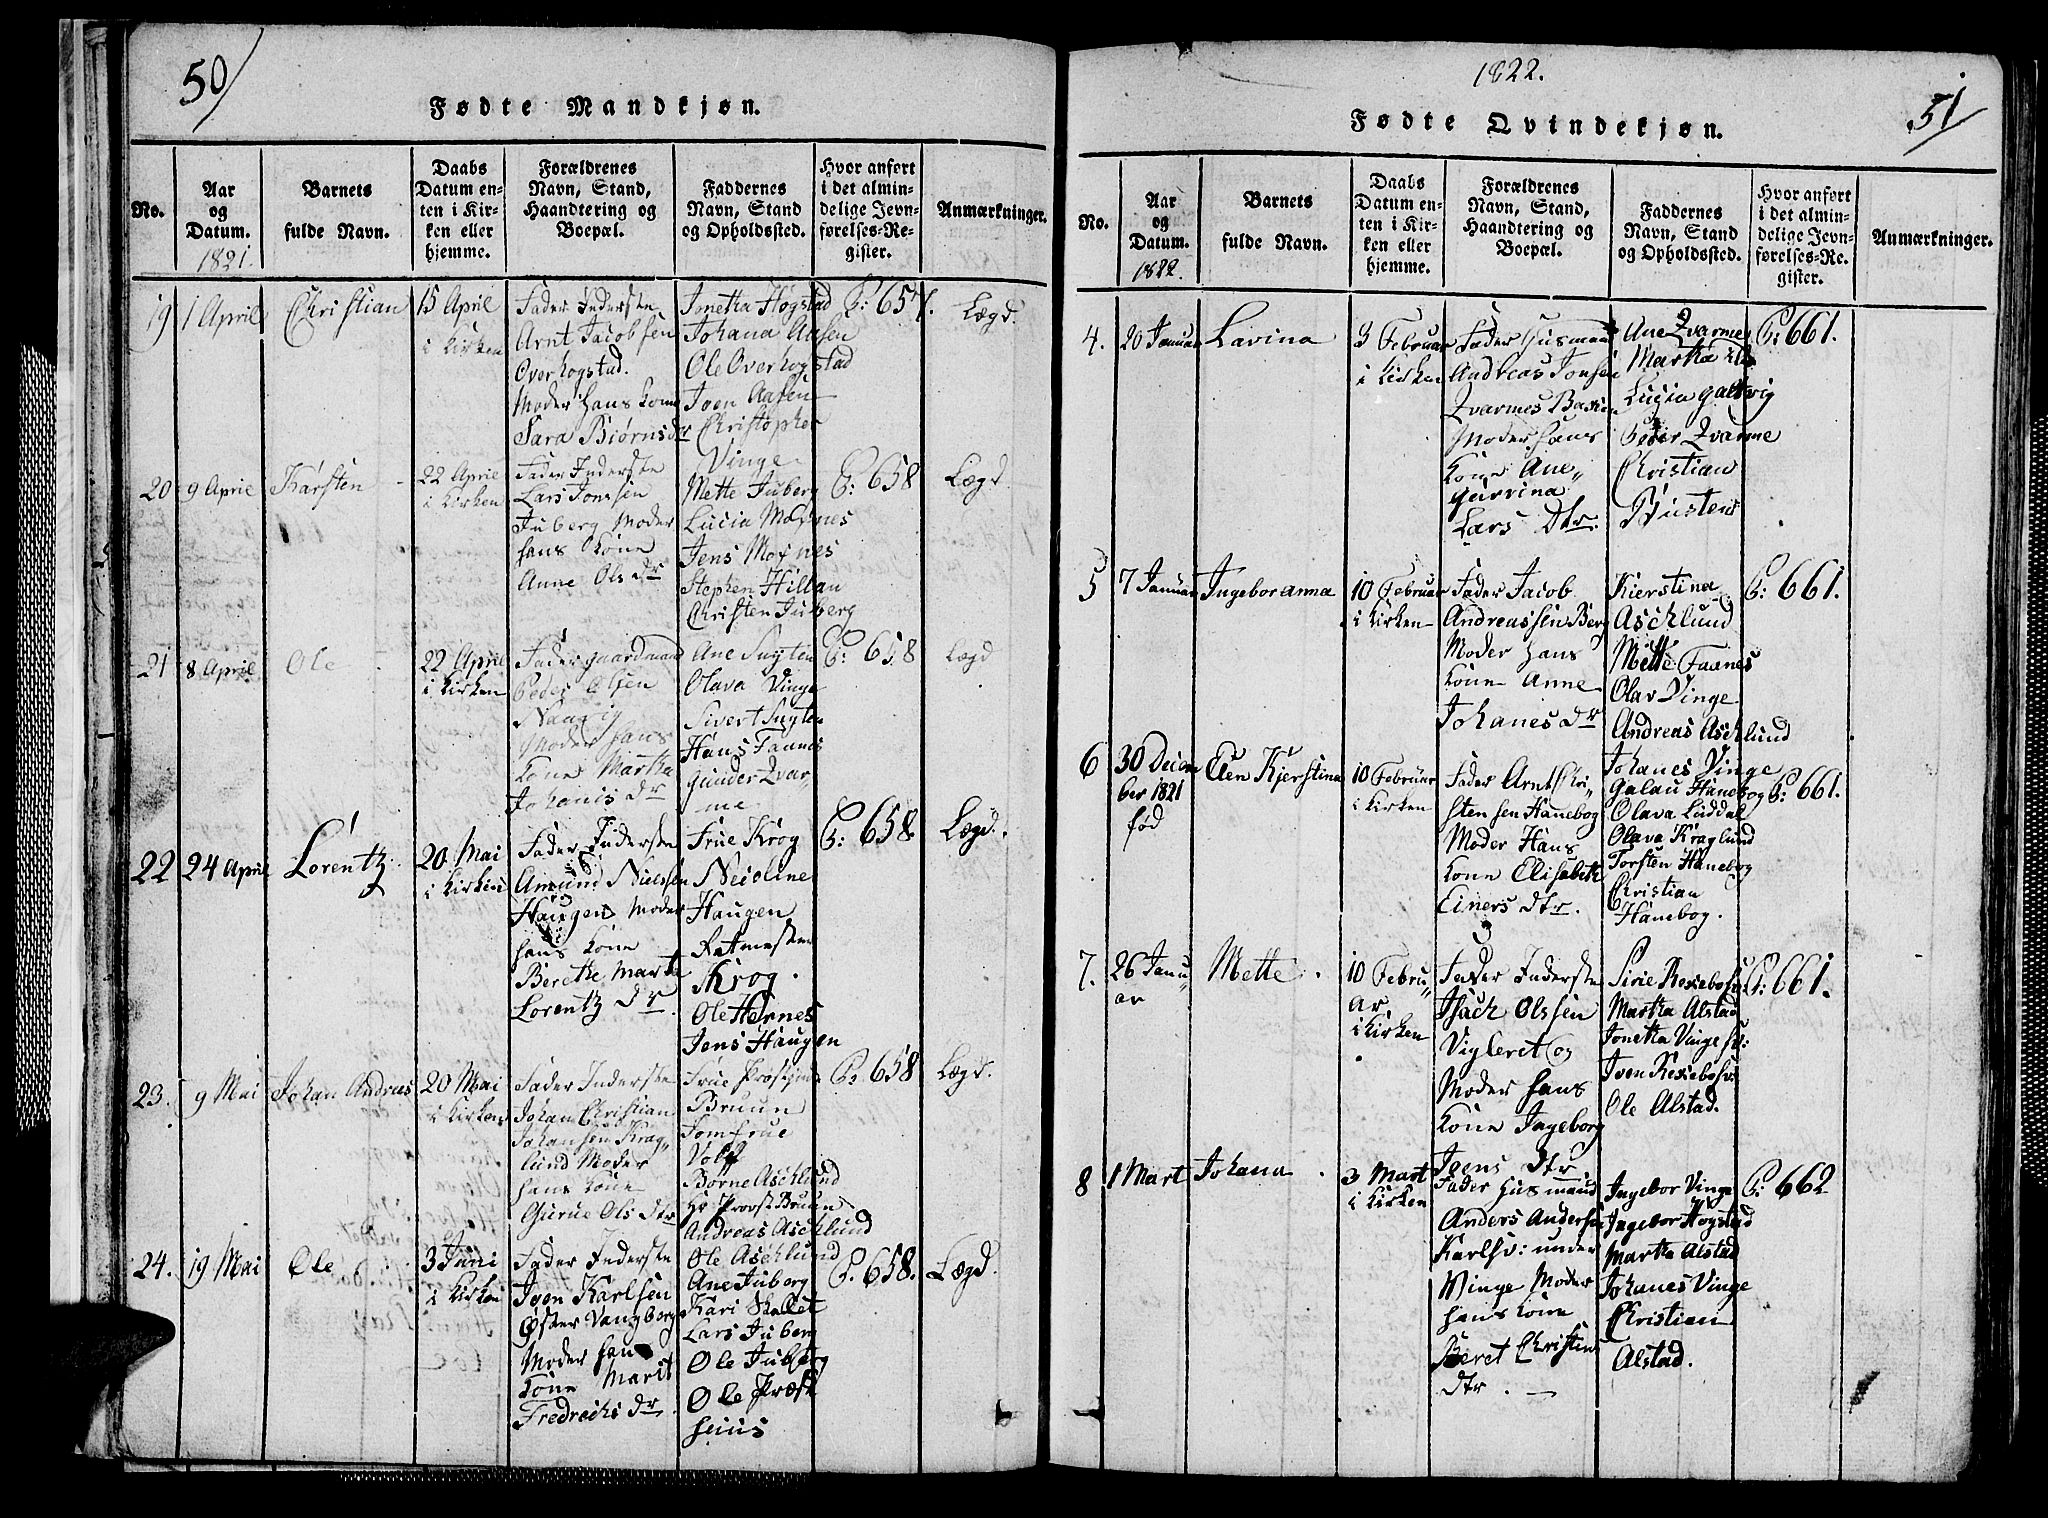 50/
Fødte Mandkjøn.
No.
Aar
og
Datum.
1821.
Barnets
fulde Navn.
Daabs
Datum en-
ten i Kir-
ken eller
hjemme.
Forældrenes
Navn, Stand,
Haandtering og
Boepæl.
Faddernes
Navn, Stand
og Opholdssted.
Hvor anført
i det almin-
delige Jevn-
førelses-Re-
gister.
Anmærkninger.
19
1 April
Christian
15 April
i Kirken
Fader Inderste
Arnt Jacobsen
Overhogstad.
Moder hans Kone
Sara Biørnsdr
Jonetha Høgstad
Johana Aasen
Ole Overhogstad
Iven Aasen
Christopher
Vinge
P: 657.
Lægd.
20
9 April
Karsten
22 April
i Kirken
Fader Inderste
Lars Jonssen
Juberg Moder
hans Kone
Anne Ols dr
Mette Juberg
Lucia Moxnes
Jens Moxnes
Stephen Hillan
Christen Juberg
P: 658
Lægd.
21
8 April
Ole
22 April
i Kirken
Fader gaardmand
Peder Olsen
Naavig
Moder hans
Kone Martha
Johanis dr
Ane Suyten
Olava Vinge
Sivert Suyten
Hans Fannes
Gunder Qvar-
me
P: 658
Lægd
22
24 April
Lorentz
20 Mai
i Kirken
Fader Inderste
Amund Nielssen
Haugen Moder
hans Kone
Berethe Marta
Lorentz dr
Frue Krog
Neioline
Haugen
Krog.
Ole Hernes
Jens Haugen
P: 658
Lægd.
23.
9 Mai
Johan Andreas
20 Mai
i Kirken
Fader Inderste
Johan Christian
Johansen Krag-
lund Moder
hans Kone
Gurue Ols dtr
Bruun
Jomfrue
Volf
Børne Aschlund
Hr Provst Bruun
Andreas Aschlund
P: 658
Lægd.
24.
19 Mai
Ole
3 Juni
i Kirken
Fader Inderste
Iven Karlsen
Øster Vangberg
Moder hans
Kone Marit
Fredrichs dr.
Ole Aschlund
Ane Juberg
Kari Skallet
Lars Juberg
Ole Juberg
Ole Præst
huus
P: 658.
Lægd.
1822.
51/
Fødte Qvindekjøn.
No.
Aar
og
Datum.
1822.
Barnets
fulde Navn.
Daabs
Datum en-
ten i Kir-
ken eller
hjemme.
Forældrenes
Navn, Stand,
Haandtering og
Boepæl.
Faddernes
Navn, Stand
og Opholdssted.
Hvor anført
i det almin-
delige Jevn-
førelses-Re-
gister.
Anmærkninger.
4.
20 Januar
Lavina
3 Februar
i Kirken
Fader Husmand
Andreas Jonsen
Qvarmes Bakken
Moder hans
Kone Ane
Gurrina
Lars Dtr.
Ane Qvarme
Martha
Lucia Galtvig
Peder Qvarme
Christian
P: 661.
5
7 Januar
Ingeboranna
10 Februar
i Kirken
Fader Jacob
Andreassen Berg
Moder hans
Kone Anne
Johanes dr
Kierstina
Aschlund
Mette Fannes
Olav Vinge
Andreas Aschlund
P: 661.
6
30 Decem
ber 1821
fød
Elen Kjerstina
10 Februar
i Kirken
Fader Arnt Chri-
stensen Hanebog
Moder Hans
Kone Elisabeth
Einers dtr.
Johanes Vinge
Galau Hanebog
Olava Luddal
Olava Kraglund
Torsten Hanebog
Christian
Hanebog.
P: 661.
7.
26 Janu-
ar
Mette
10 Febru-
ar
i Kirken
Fader Inderste
Isach Olssen
Vigleret og
Moder hans
Kone Ingeborg
Joens Dtr
Sirie Rexebosv:
Martha Alstad
Jonetha Vinge sv:
Iven Rexebosv:
Ole Alstad.
P: 661.
8
1 Mart
Johana
3 Mart
i Kirken
Fader Husmand
Anders Andersen
Karlsv: under
Vinge Moder
hans Kone
Beret Christen
dtr.
Ingebor Vinge
Ingebor Hogstad
Martha Alstad
Johanes Vinge
Christian
Alstad.
P: 662